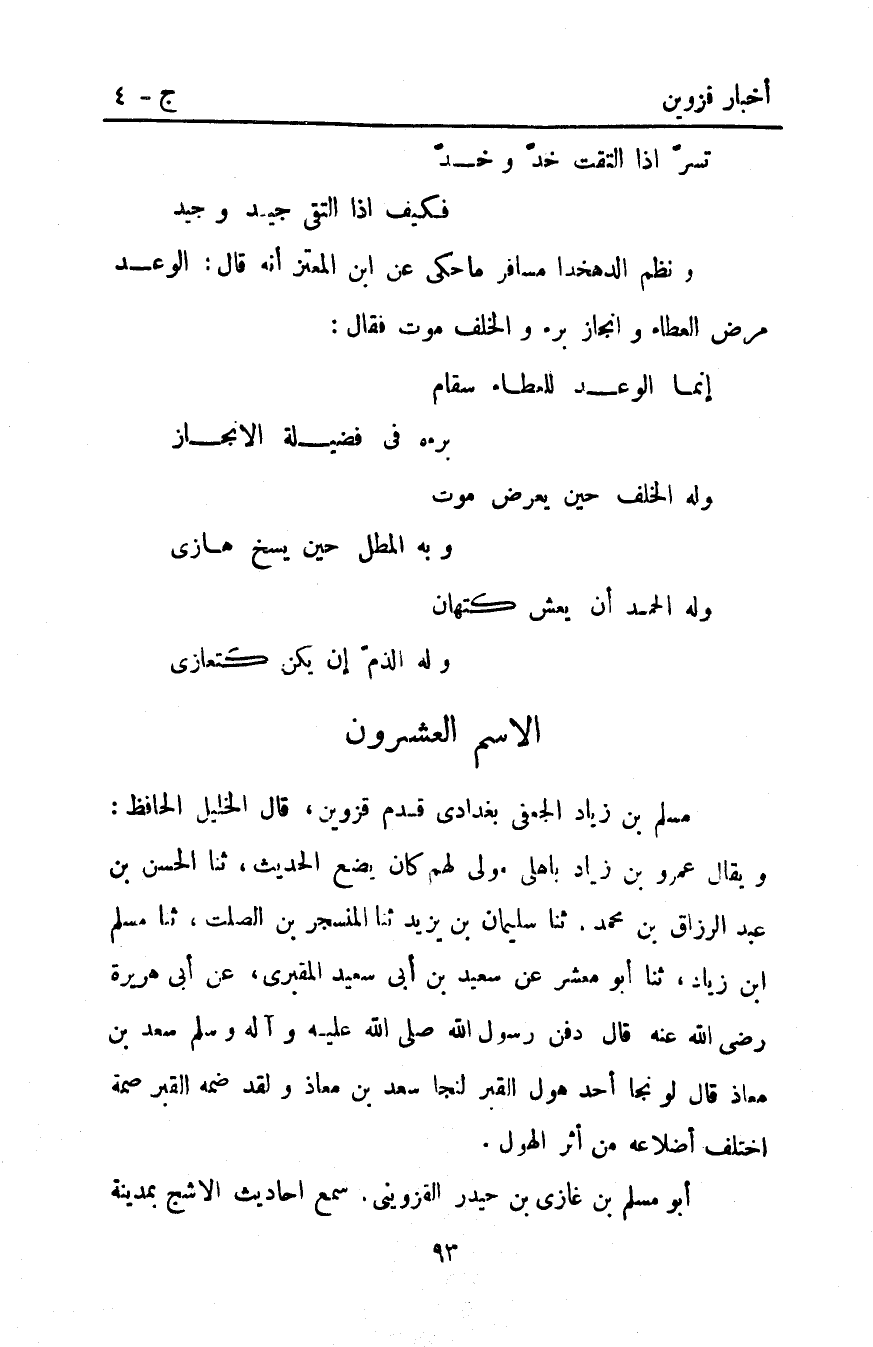 أخبار قزوين ج - ٤
تسرّ اذا التقت خدّ و خـــدّ
فكيف اذا التقى جيد و جيد
و نظم الدهخدا مسافر ماحكى عن ابن المعتز أنه قال: الوعد
مرض العطاء و انجاز برء و الخلف موت فقال :
إنما الوعد للعطاء سقام
برءه فى فضيلة الانجاز
وله الخلف حين يعرض موت
و به المطل حين يسخ هازى
وله الحمد أن يعش كتهان
و له الذمّ إن يكن كتعازى
الاسم العشرون
مسلم بن زياد الجعفى بغدادى قدم قزوين، قال الخليل الحافظ :
و يقال عمرو بن زياد باهلى مولى لهم كان يضع الحديث، ثنا الحسن بن
عبد الرزاق بن محمد. ثنا سليمان بن يزيد ثنا المنسجر بن الصلت، ثنا مسلم
ابن زياد، ثنا أبو معشر عن سعيد بن أبى سعيد المقبرى، عن أبى هريرة
رضى الله عنه قال دفن رسول الله صلى الله عليه و آله و سلم سعد بن
معاذ قال لو نجا أحد هول القبر لنجا سعد بن معاذ و لقد ضمه القبر صمة
اختلف أضلاعه من أثر الهول .
أبو مسلم بن غازى بن حيدر القزوينى. سمع احاديث الاشج بمدينة
٩٣